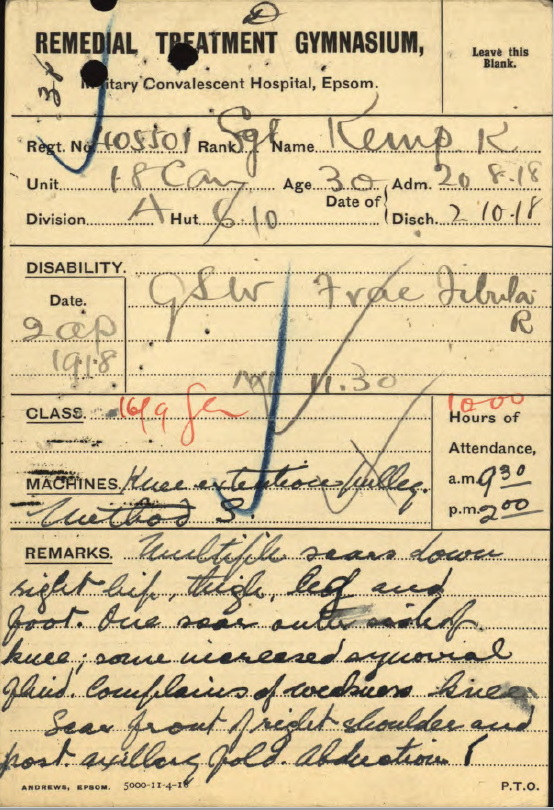 REMEDIAL TREATMENT GYMNASIUM,
Leave this
Blank.
38
Military Convalescent Hospital, Epsom.
Regt. No. 405501 Rank Sgt Name Kemp K
Unit 18 Can Age 30 Date of Adm. 20 8.18
Division A Hut 6.10 Disch. 2 10.18
DISABILITY.
Date. GSW Frac Fibula
R
2 ap
1918
11.30
CLASS. 16/9 Gen
1000
Hours of
Attendance,
a.m. 9 30
p.m. 2 00
MACHINES. Knee extention pulley.
Method S.
REMARKS. Multiple scars down
right hip, thigh, leg and
foot. One scar outer side of
knee; some increased synovial
fluid. Complains of weakness knee
Scar front of right shoulder and
post. axillary fold. Abduction
ANDREWS, EPSOM. 5000-11-4-18
P.T.O.